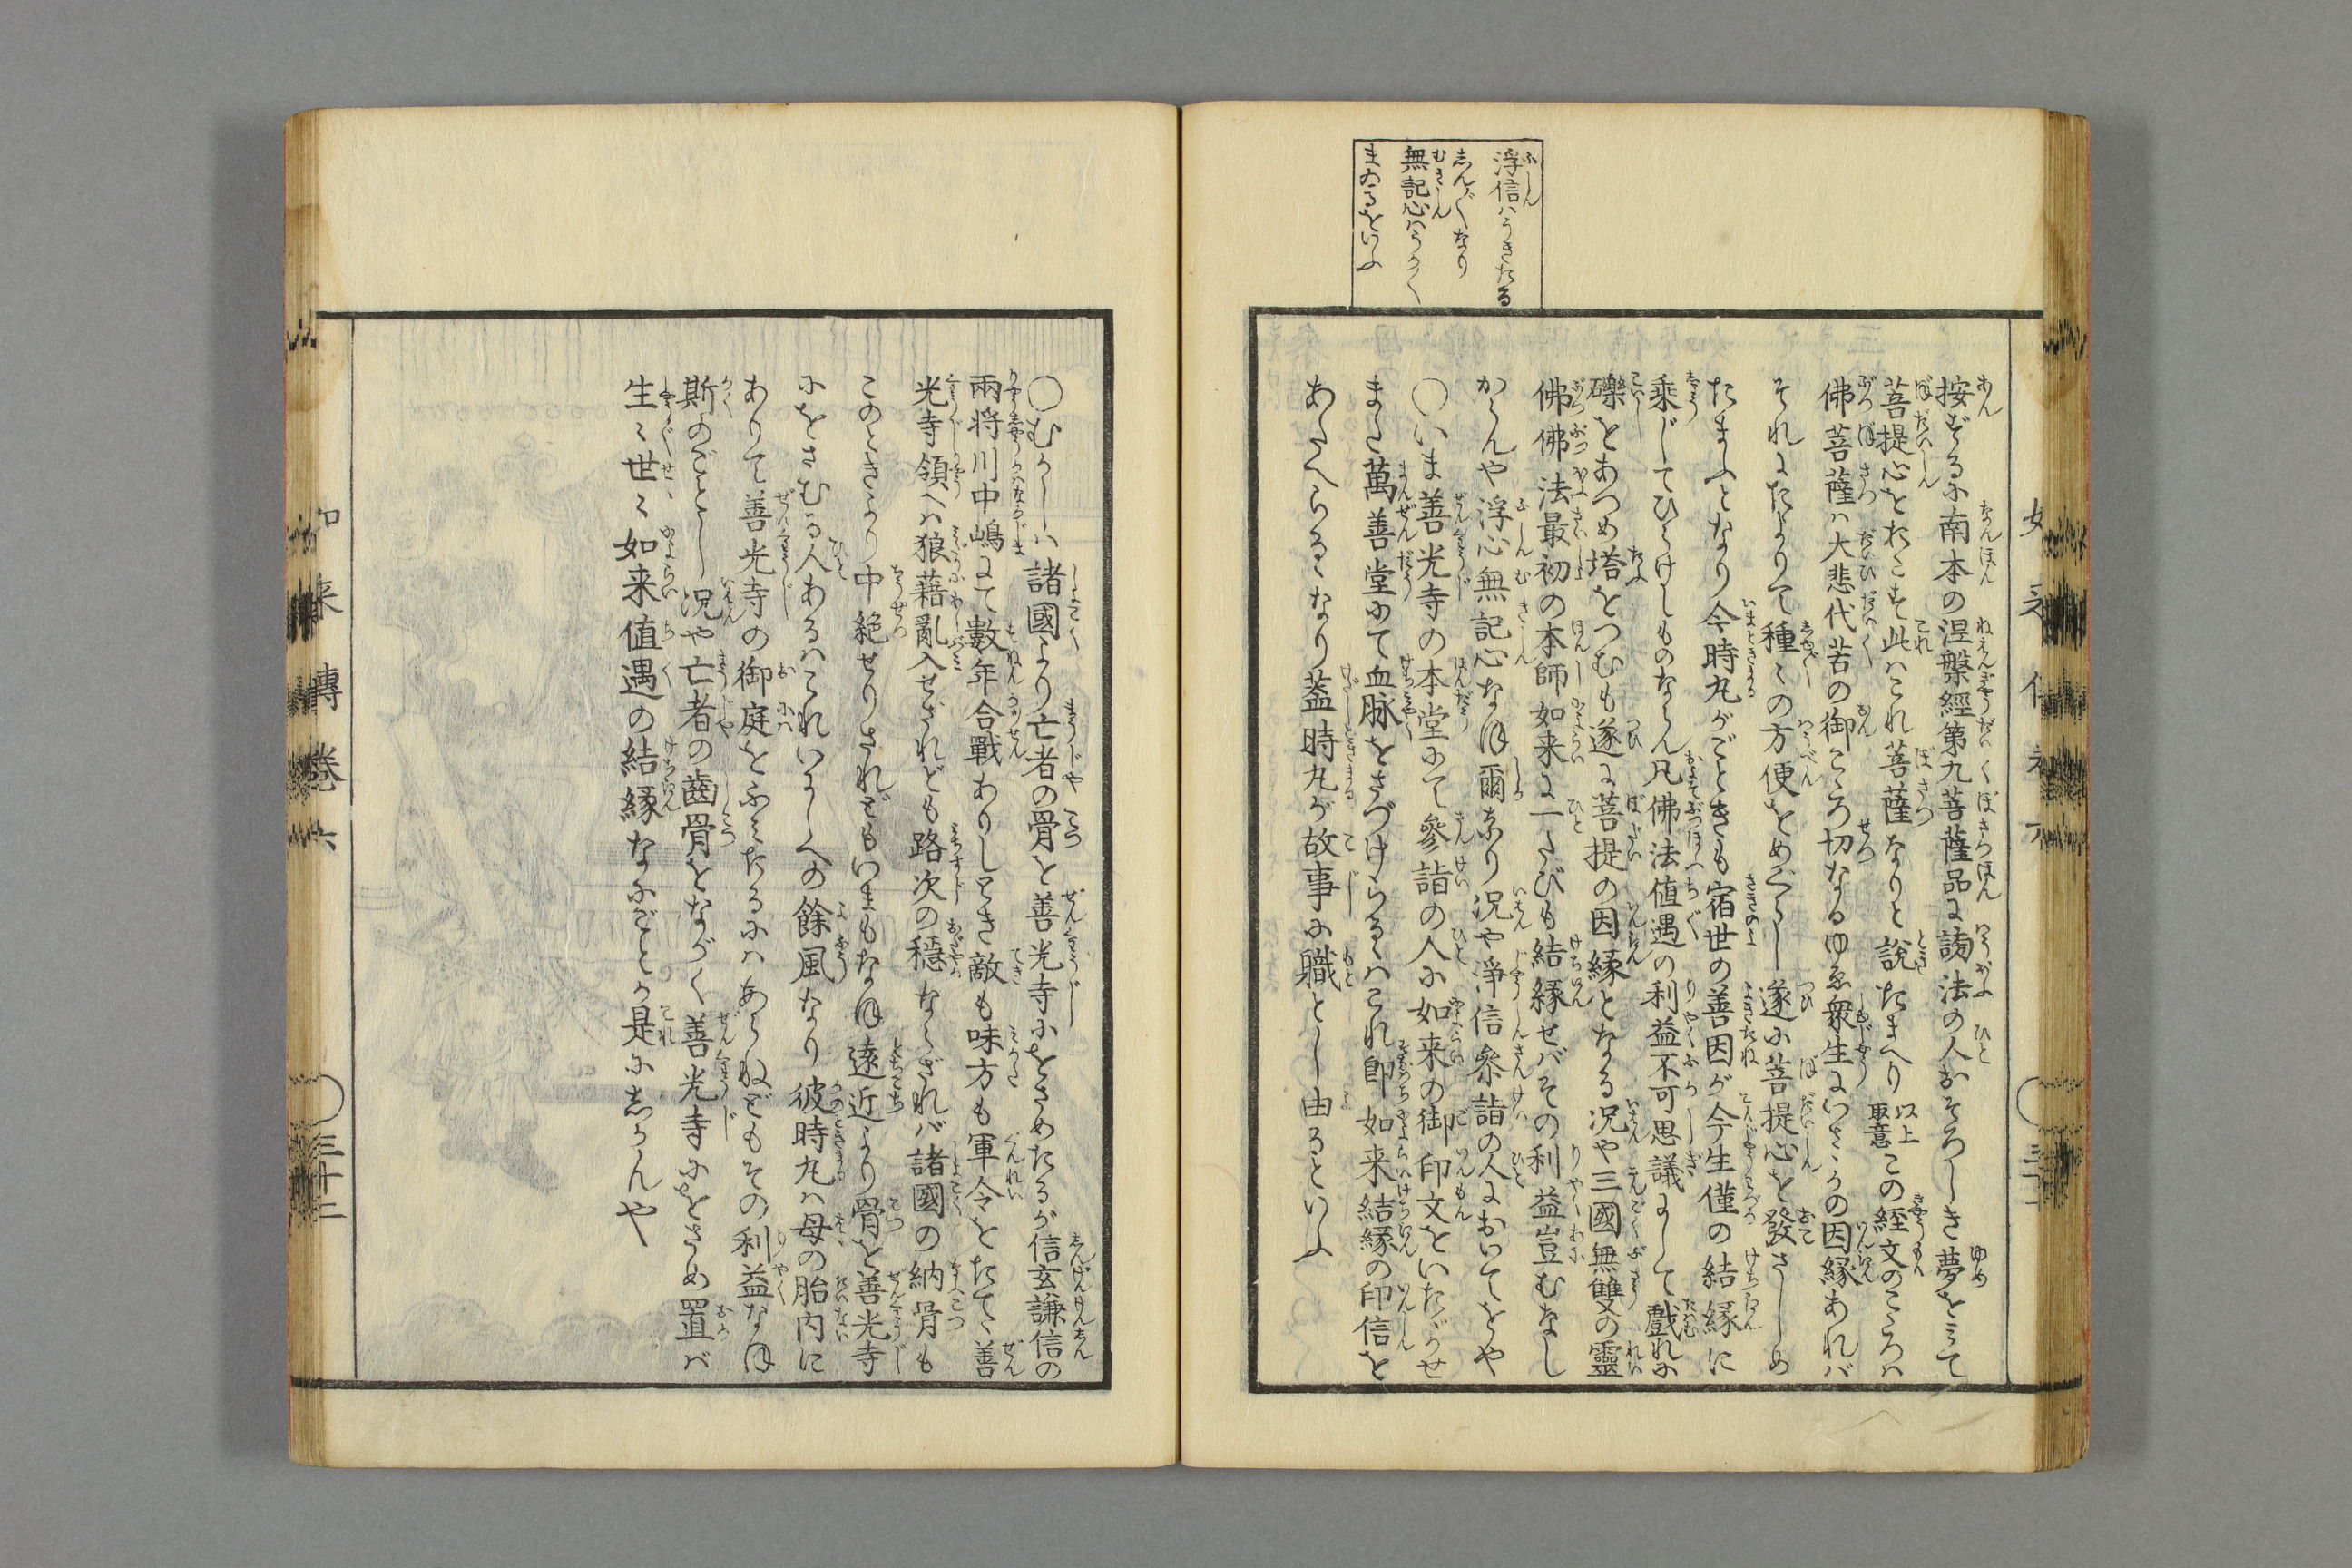 浮信ハうきたる
しん〴〵なり
無記心ハうか〳〵
まゐるをいふ
按ずるに南本の涅槃經第九菩薩品に謗法の人おそろしき夢をみて
菩提心をおこす此ハこれ菩薩なりと説たまへり以上取意この経文のこころハ
佛菩薩ハ大悲代苦の御こゝろ切なるゆゑ衆生にいさゝかの因縁あれバ
それによりて種〻の方便をめぐらし遂に菩提心を發さしめ
たまふとなり今時丸がごときも宿世の善因が今生僅の結縁に
乘じてひらけしものならん凡佛法値遇の利益不可思議にして戲れに
礫をあつめ塔をつむも遂に菩提の因縁となる况や三國無雙の靈
佛佛法最初の本師如来に一たびも結縁せバその利益豈むなし
からんや浮心無記心なほ爾なり况や淨信參詣の人においてをや
〇いま善光寺の本堂にて參詣の人に如来の御印文をいたゞかせ
また萬善堂にて血脉をさづけらるゝハこれ即如来結縁の印信を
あたへらるゝなり蓋時丸が故事に職として由るといふ
〇むかしハ諸國より亡者の骨を善光寺にをさめたるが信玄謙信の
兩将川中嶋にて數年合戰ありしとき敵も味方も軍令をたてゝ善
光寺領へハ狼藉亂入せざれども路次の穏ならざれバ諸國の納骨も
このときより中絶せりされどもいまもなほ遠近より骨を善光寺
にをさむる人あるハこれいにしへの餘風なり彼時丸ハ母の胎内に
ありて善光寺の御庭をふみたるにハあらねどもその利益なほ
斯のごとし况や亡者の齒骨をながく善光寺にをさめ置バ
生〻世〻如来値遇の結縁なにごとか是にしかんや
如来傳卷六
三十二